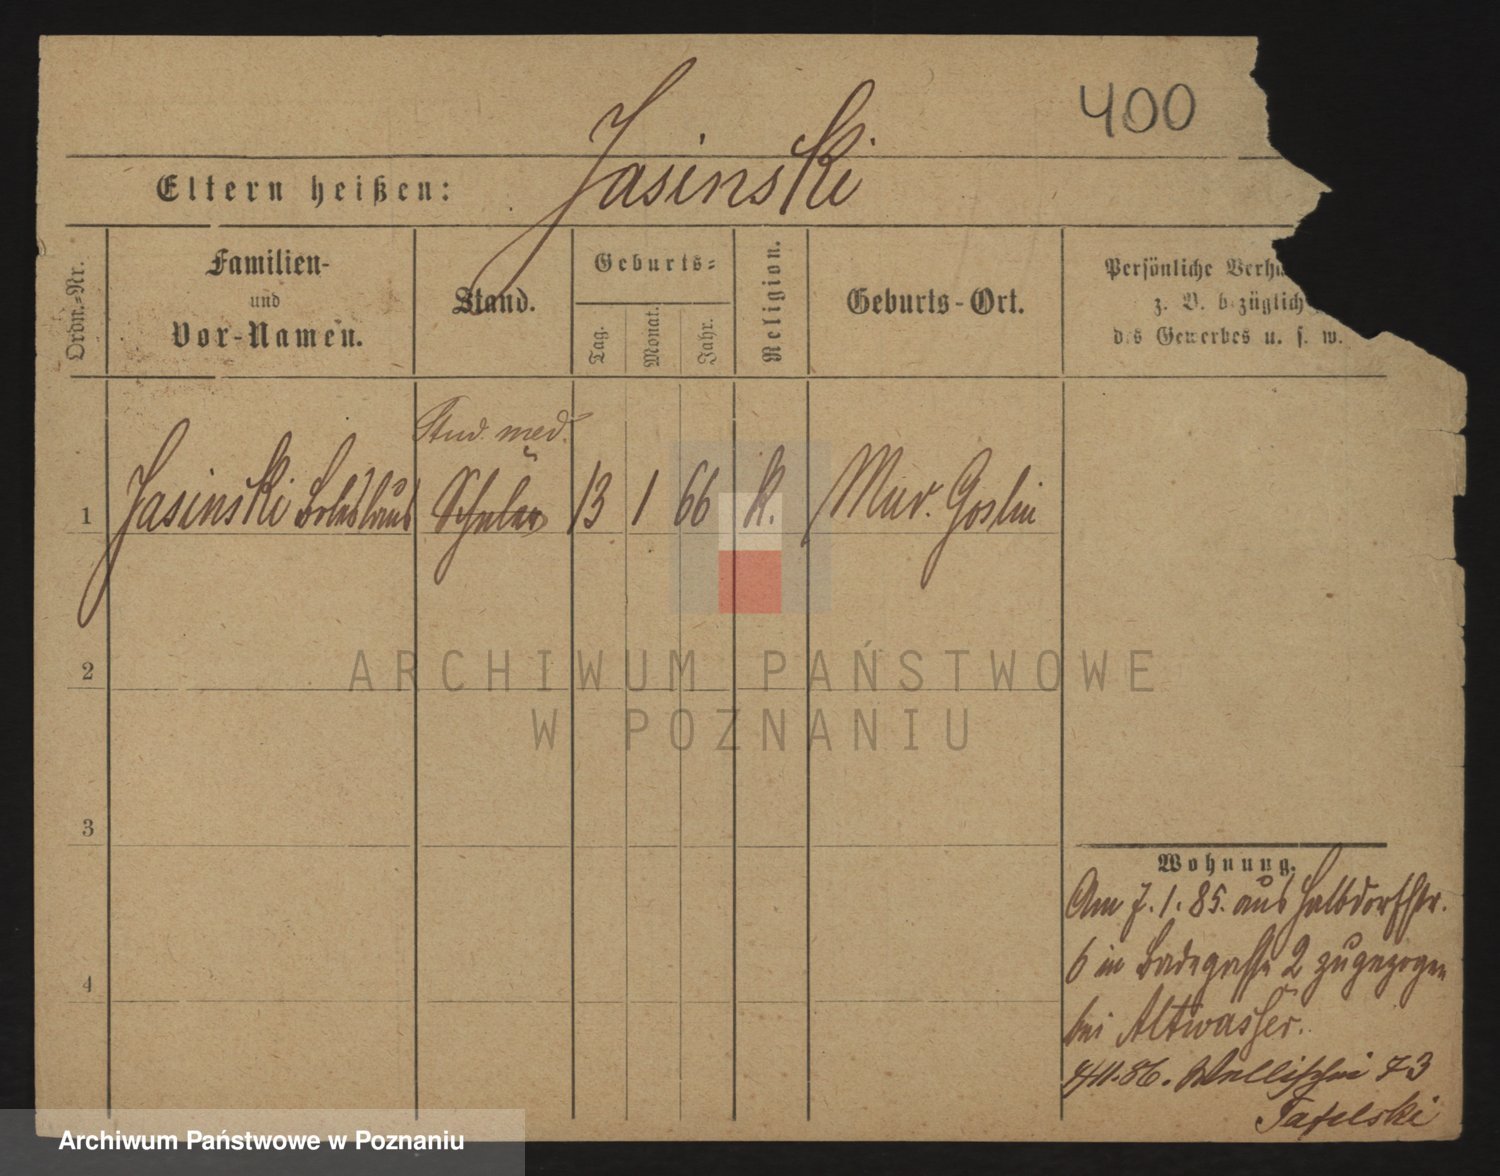 400
Jasinski
Eltern heißen:
Ordn.-Nr.
Familien-
und
Vor-Namen.
Stand.
Geburts-
Tag.
Monat.
Jahr.
Religion.
Geburts-Ort.
Persönliche
z. B. bezüglich
des Gewerbes u. s. w.
Stud. med.
1 Jasinski Boleslaus Schüler 13 1 66 k. Mur. Goslin
2
3
4
Wohnung.
Am 7. 1. 85. aus Halbdorfstr.
6 in Badegasse 2 zugezogen
bei Altwasser.
86. Wallischei 73
Tafelski
ARCHIWUM PAŃSTWOWE
W POZNANIU
Archiwum Państwowe w Poznaniu